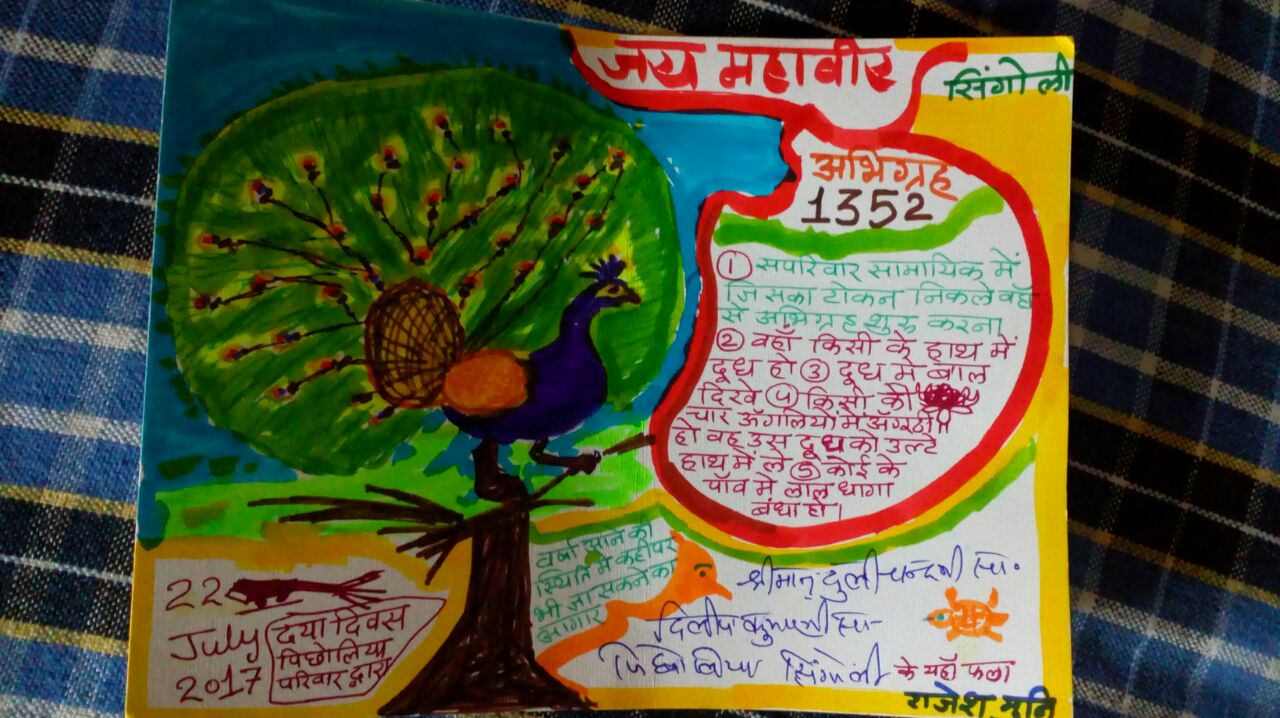 जय महावीर
सिंगोली
अभिग्रह
1352
① सपरिवार सामायिक में
जिसका टोकन निकले वहाँ
से अभिग्रह शुरू करना
② वहाँ किसी के हाथ में
दूध हो ③ दूध में बाल
दिखे ④ किसी की
चार अँगलियों में अँगूठी
हो वह उस दूध को उल्टे
हाथ में ले ⑤ कोई के
पाँव में लाल धागा
बंधा हो।
वर्षा आने की
स्थिति में कहीं पर
भी जा सकने का
आगार
22
July
2017
दया दिवस
पिछोलिया
परिवार द्वारा
श्रीमान् दुलीचन्दजी सा.
दिलीप कुमारजी सा-
पिछोलिया सिंगोली के यहाँ फला
राजेश मुनि